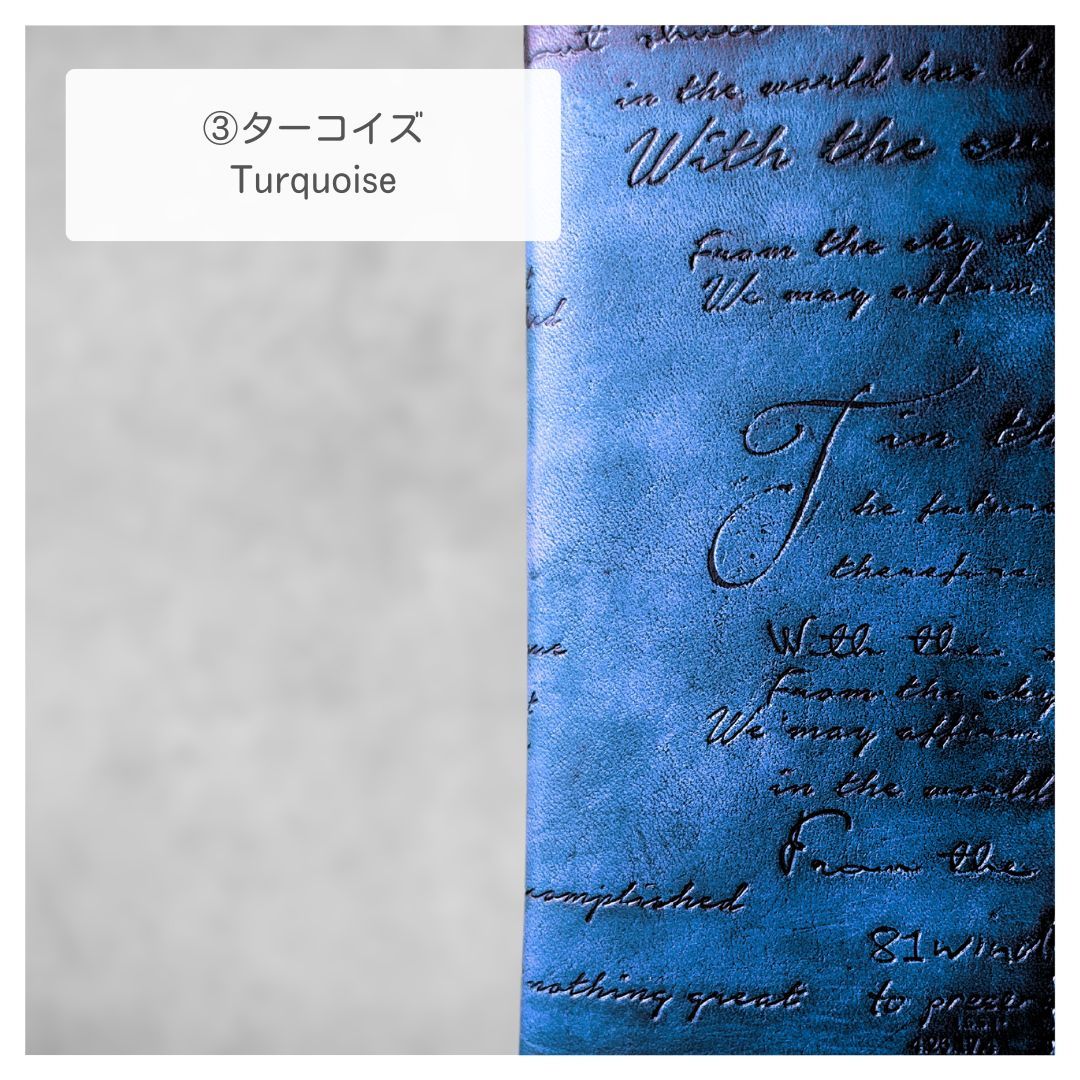 ③ターコイズ
Turquoise
in the world has
With the
From the sky of
We may affirm
T in
he future
therefore
With the
From the sky
We may affirm
in the world
From the
accomplished
81wind
nothing great to